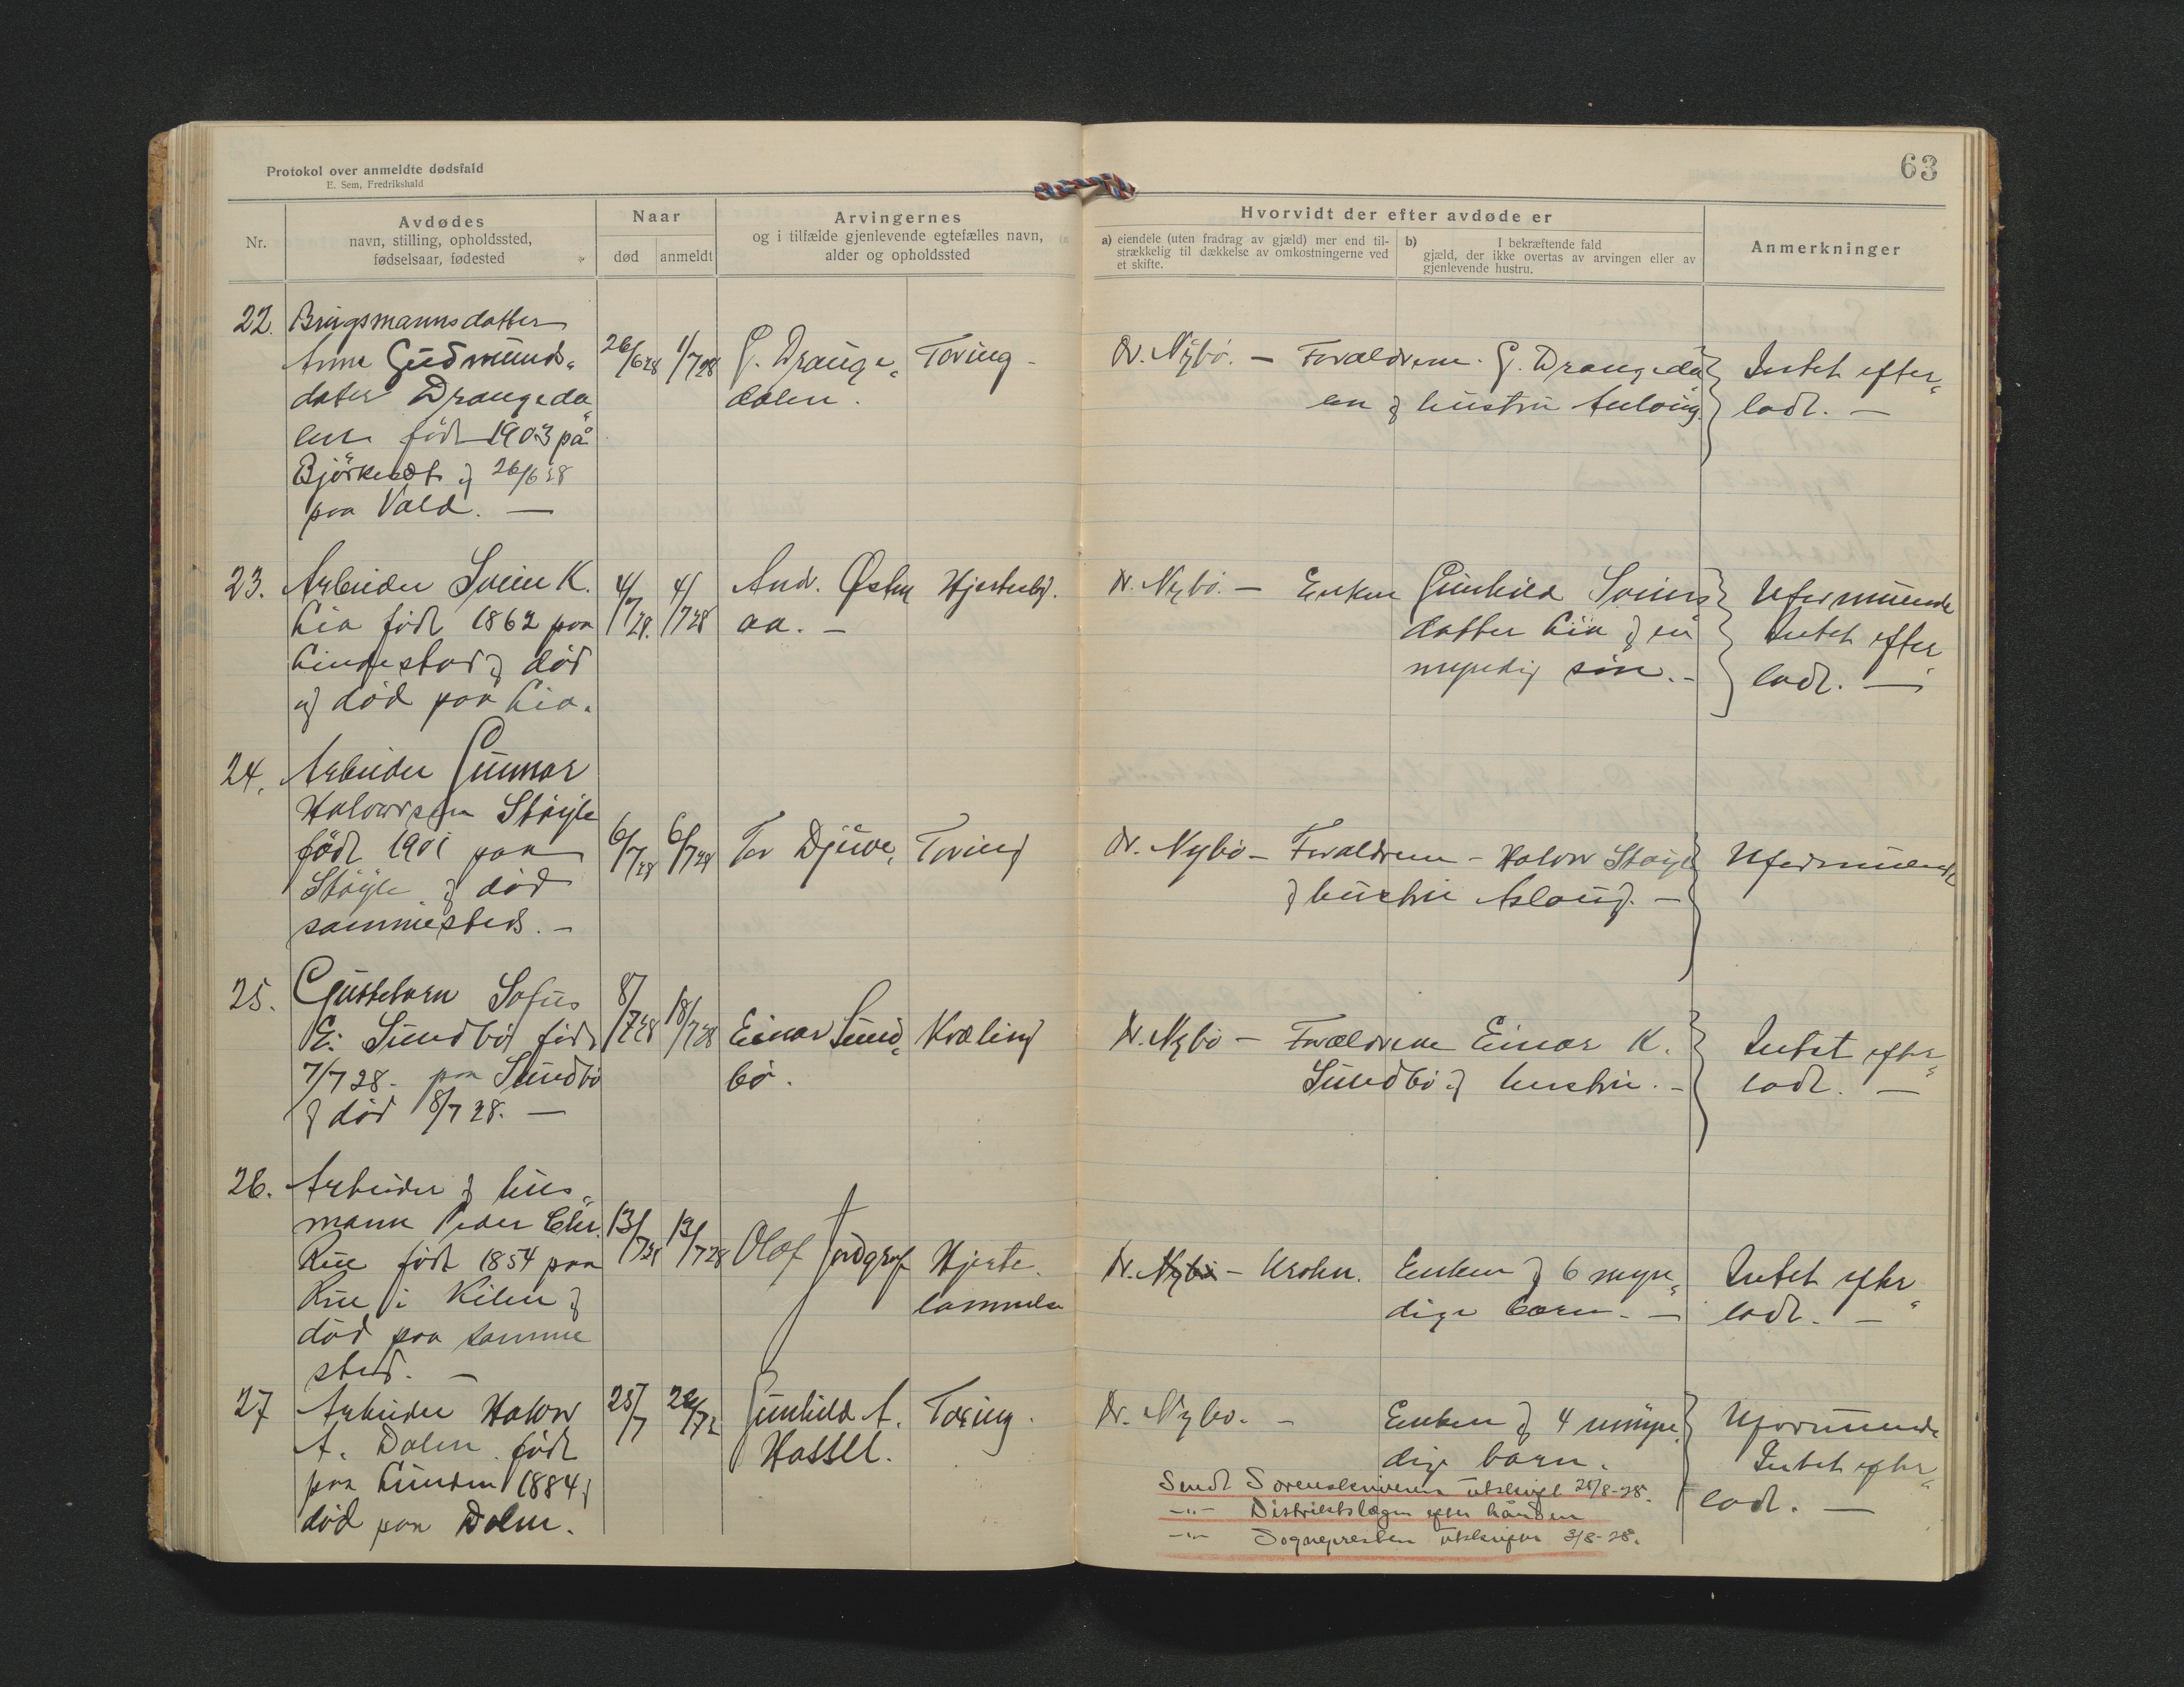 Protokol over anmeldte dødsfald
E. Sem, Fredrikshald
63
Nr.
Avdødes
navn, stilling, opholdssted,
fødselsaar, fødested
Naar
død
anmeldt
Arvingernes
og i tilfælde gjenlevende egtefælles navn,
alder og opholdssted
Hvorvidt der efter avdøde er
a) eiendele (uten fradrag av gjæld) mer end til-
strækkelig til dækkelse av omkostningerne ved
et skifte.
b) I bekræftende fald
gjæld, der ikke overtas av arvingen eller av
gjenlevende hustru.
Anmerkninger
22.
Brugsmannsdatter
Anne Gudmunds„
dater Drangeda„
len født 1903 på
og 26/6 28
paa Vald. —
26/6 28
1/7 28
G. Drange„
dalen.
Dr. Nybö. — Forældrene. G. Drangedal
en og hustru
Intet efter„
ladt. —
23.
Arbeider K.
Lia født 1862 paa
og död
og död paa Lia.
4/7 28.
4/7 28
And. Østen
aa. —
Dr. Nybö. — Enken Gunhild
datter Lia og en
myndig sön. -
Uformuende
Intet efter„
ladt. —
24.
Arbeider Gunnar
Halvorsen Stöyle
født 1901 paa
Stöyle og död
sammesteds. -
6/7 28
6/7 28
Tor Djuve,
Dr. Nybö - Forældrene - Halvor Stöyle
og hustru Aslaug. —
Uformuende
25.
Sofus
E. Sundbö født
7/7 28. paa Sundbö
og död 8/7 28. —
8/7 28
18/7 28
Einar Sund„
bö.
Dr. Nybö — Forældrene Einar K.
Sundbö og hustru. -
Intet efter„
ladt. —
26.
Arbeider og hus„
mann Peder Chr.
Rue født 1854 paa
Rue i Kilen og
død paa samme
sted. —
13/7 28
19/7 28
Olaf Jordgrav
Hjarte.
Dr. Nybö - Krohn. Enken og 6 myn„
dige barn. —
Intet efter„
ladt. —
27
Arbeider Halvor
A. Dalen født
paa Lunden 1884 og
död paa Dalen.
25/7
Gunhild A.
Dr. Nybö. - Enken og 4 umyn„
dige barn.
Uformuende
Intet efter„
ladt. —
Sendt Sorenskriveren utskrift 28.
-"- Distriktslægen efter hånden
-"- Sognepresten utskrifter 3/8-28.